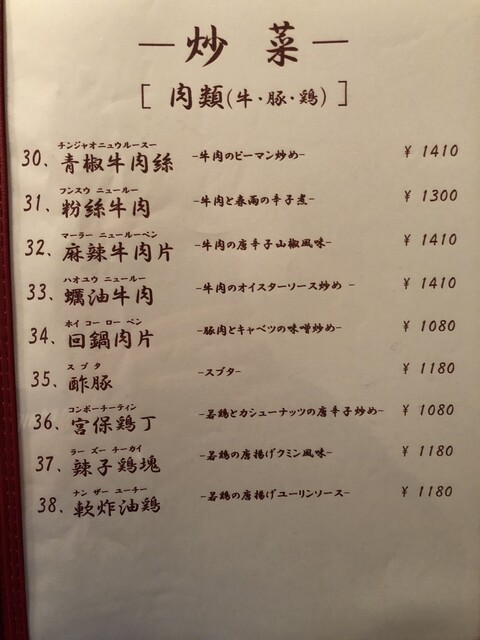 ― 炒 菜 ―
[ 肉類(牛・豚・鶏) ]
チンジャオニュウルースー
30、青椒牛肉絲 -牛肉のピーマン炒め- ¥ 1410
フンスウ ニュールー
31、粉絲牛肉 -牛肉と春雨の辛子煮- ¥ 1300
マーラー ニュールーペン
32、麻辣牛肉片 -牛肉の唐辛子山椒風味- ¥ 1410
ハオユウ ニュールー
33、蠣油牛肉 -牛肉のオイスターソース炒め - ¥ 1410
ホイ コー ロー ペン
34、回鍋肉片 -豚肉とキャベツの味噌炒め- ¥ 1080
スブタ
35、酢豚 -スブタ- ¥ 1180
コンポーチーティン
36、宮保鶏丁 -若鶏とカシューナッツの唐辛子炒め- ¥ 1080
ラー ズー チーカイ
37、辣子鶏塊 -若鶏の唐揚げクミン風味- ¥ 1180
ナン ザー ユーチー
38、軟炸油鶏 -若鶏の唐揚げユーリンソース- ¥ 1180